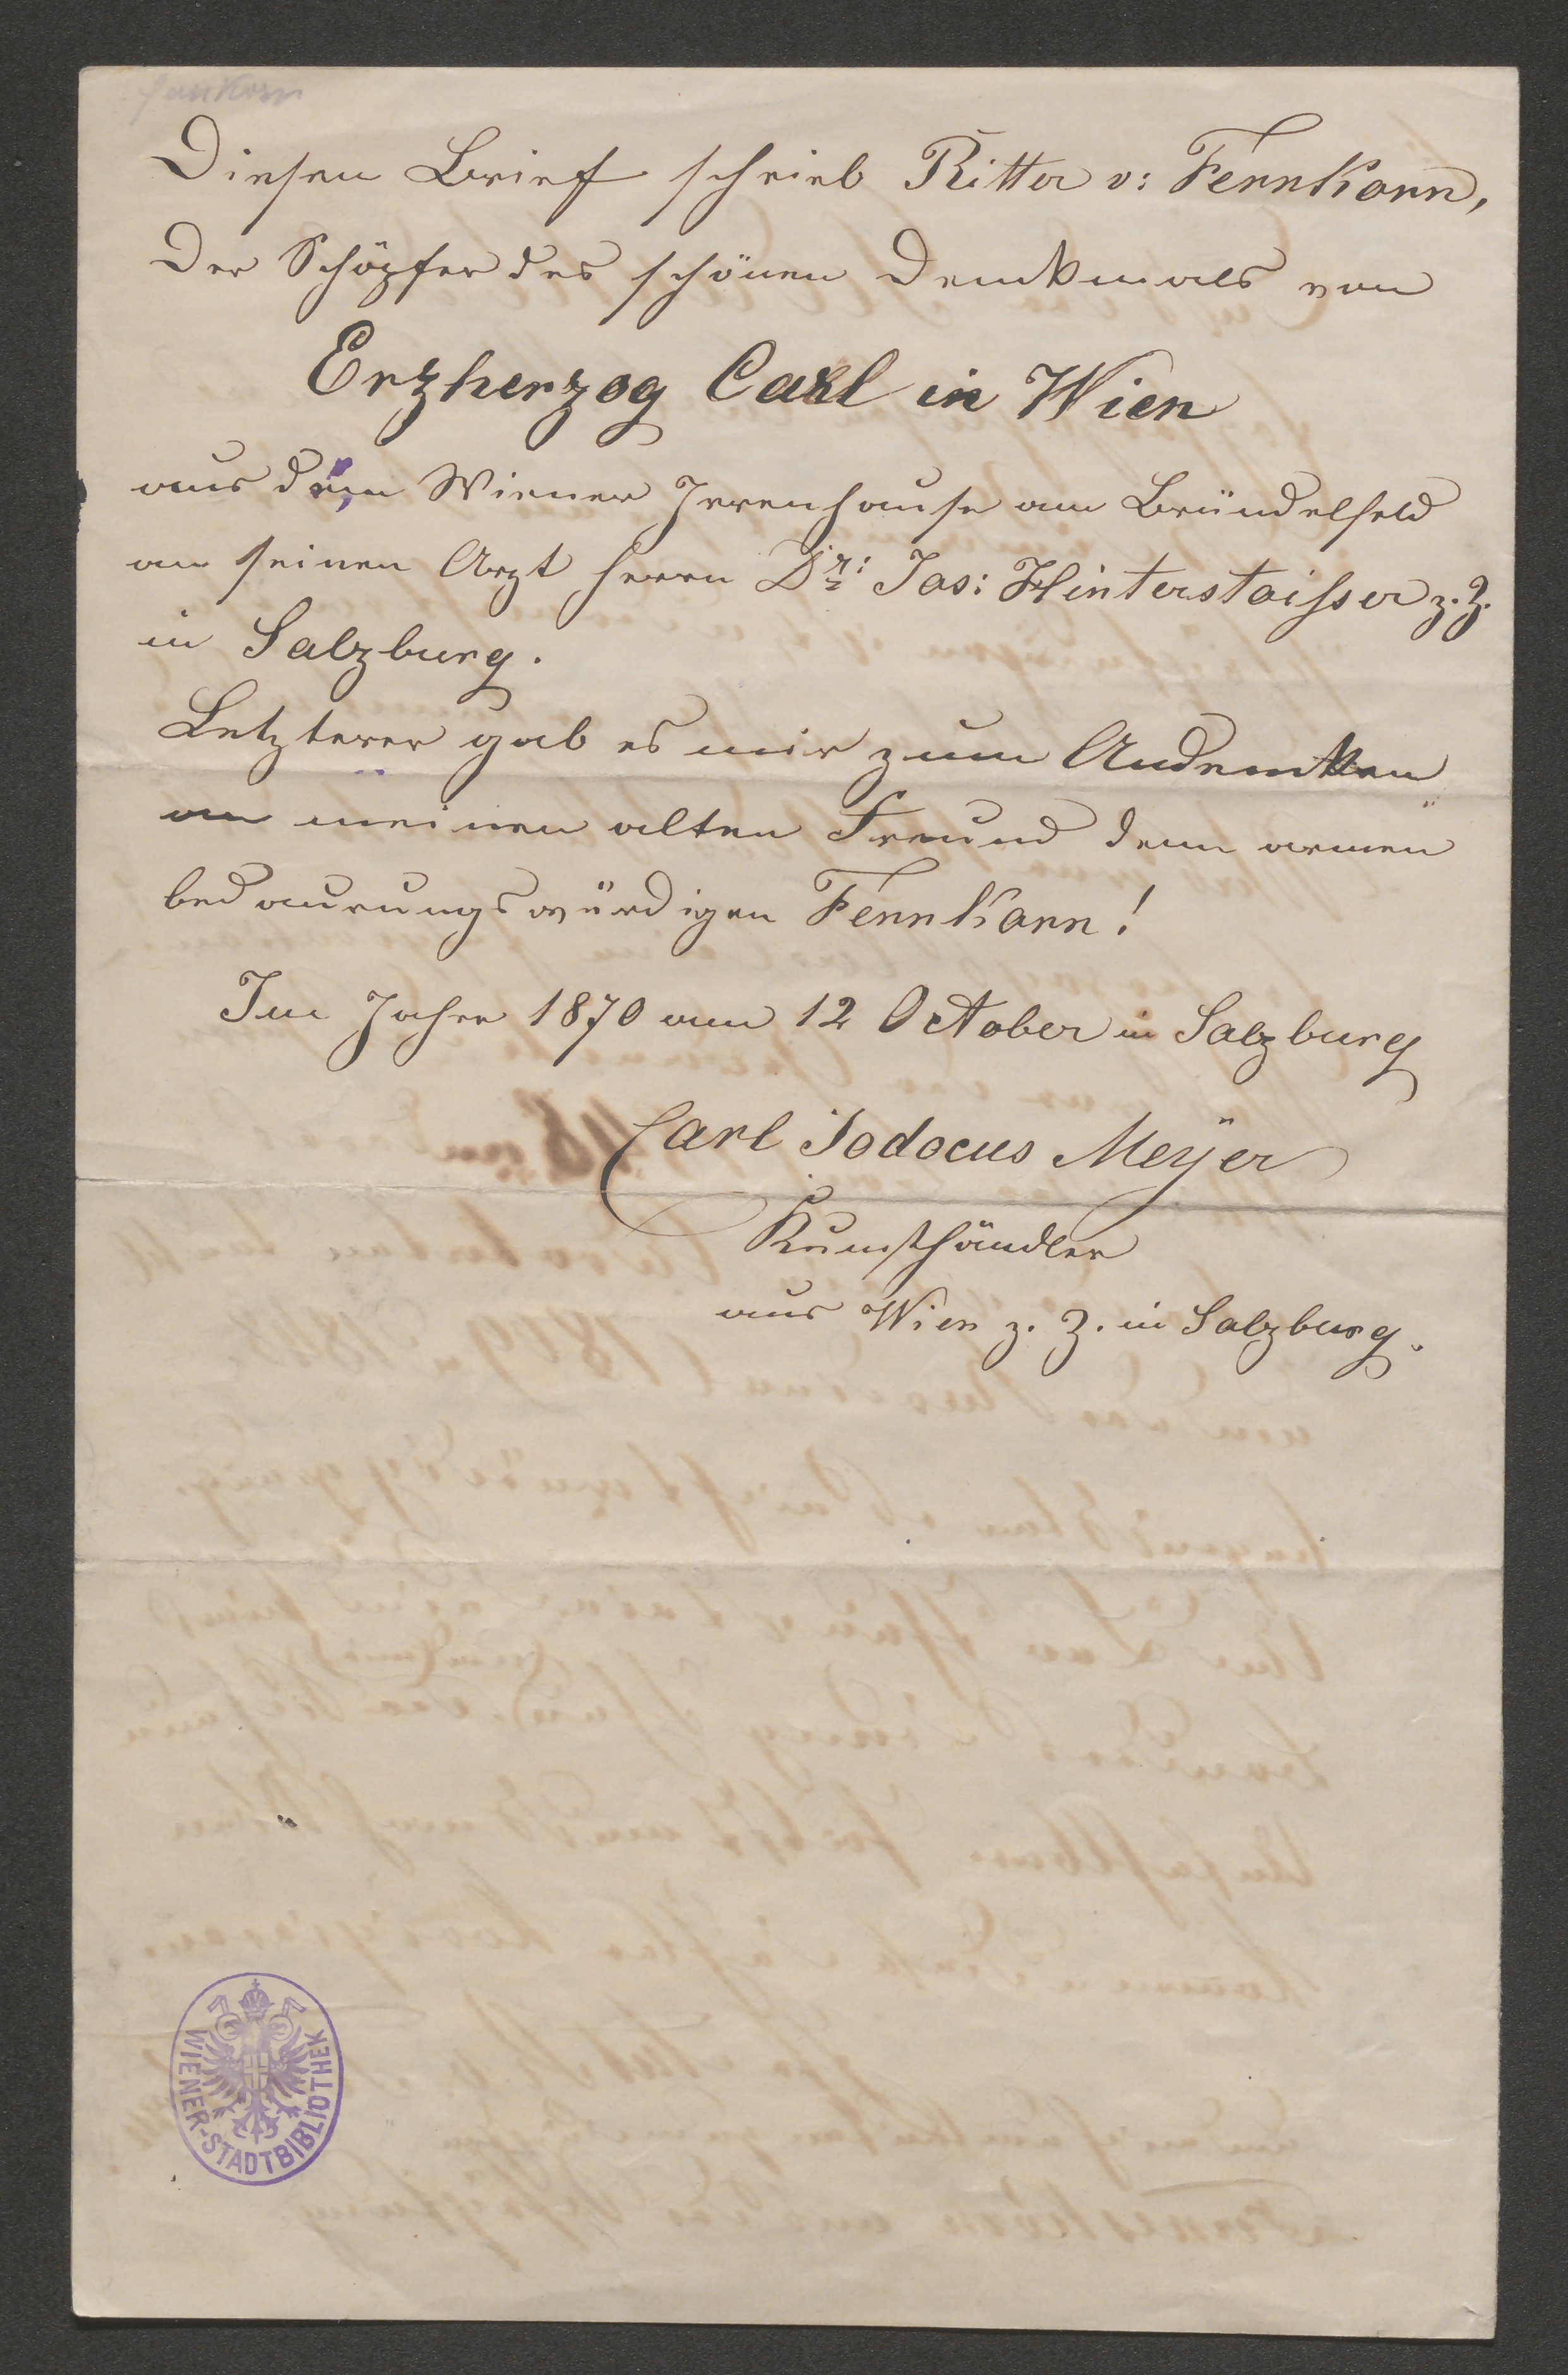 Diesen Brief schrieb Ritter v: Fernkorn,
Der Schöpfer des schönen Denkmals von
Erzherzog Carl in Wien
aus dem Wiener Irrenhause am Bründelfeld
an seinen Arzt Herrn Dr: Jos: Hinterstoisser z. Z.
in Salzburg.
Letzterer gab es mir zum Andenken
an meinen alten Freund dem armen
bedaurungswürdigen Fernkorn!
Im Jahre 1870 am 12 October in Salzburg
Carl Jodocus Meÿer
Kunsthändler
aus Wien z. Z. in Salzburg.
WIENER-STADTBIBLIOTHEK